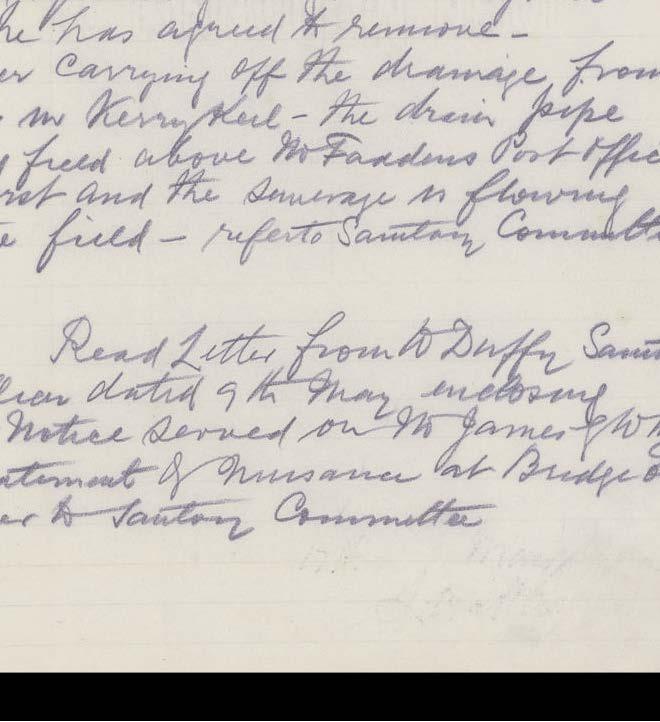 he has agreed to remove -
er carrying off the drainage from
in Kerrykeel - the drain pipe
field above McFaddens Post Offic
rst and the sewerage is flowing
e field - refer to Sanitary Committe
Read Letter from W Duffy Sanit
dated 9th May enclosing
Notice served on Mr James
atement of Nuisance at Bridge
er to Sanitary Committee